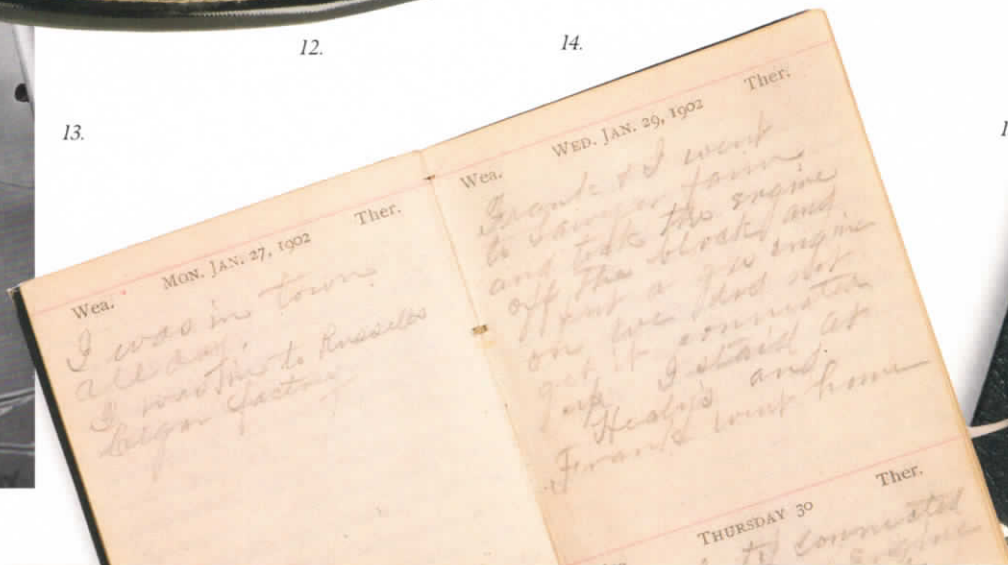 12.
14.
13.
1
Wea. Ther.
MON. JAN. 27, 1902
I was in town
all day.
I was the to Russells
factory
Wea. Ther.
WED. JAN. 29, 1902
Frank & I went
to farm
and took the engine
off the block and
put a gas engine
on we did not
get it connected
up I staid at
Healy's and
Frank went home
THURSDAY 30 Ther.
connected
engine